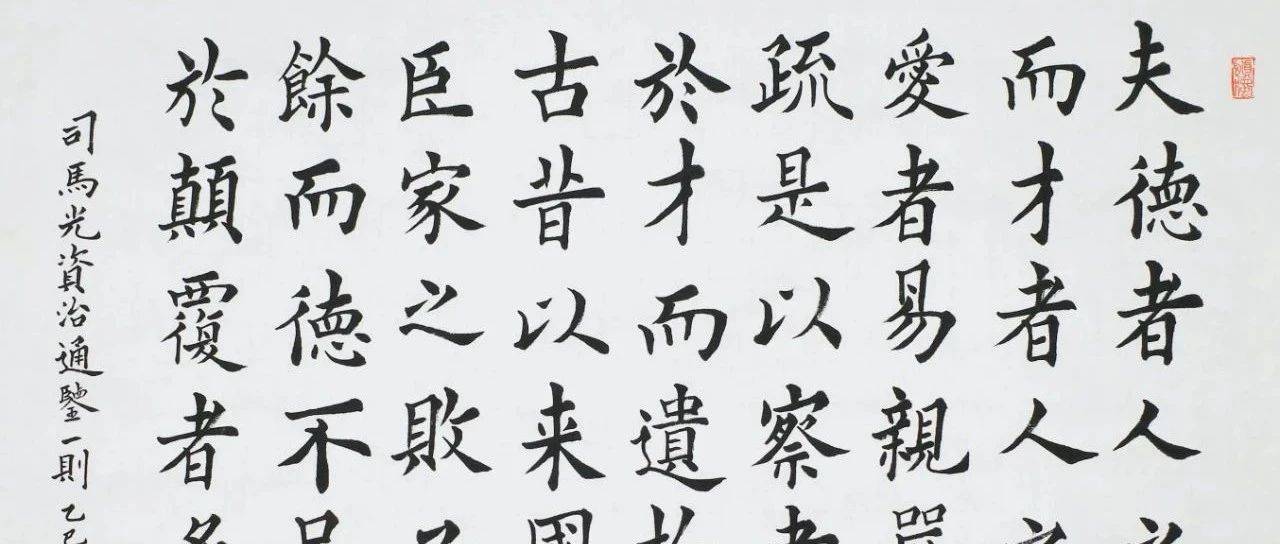 夫德者人
而才者人
愛者易親
疏是以察
於才而遺
古昔以来
臣家之敗
餘而德不
於顛覆者
司馬光資治通鑒一則乙巳